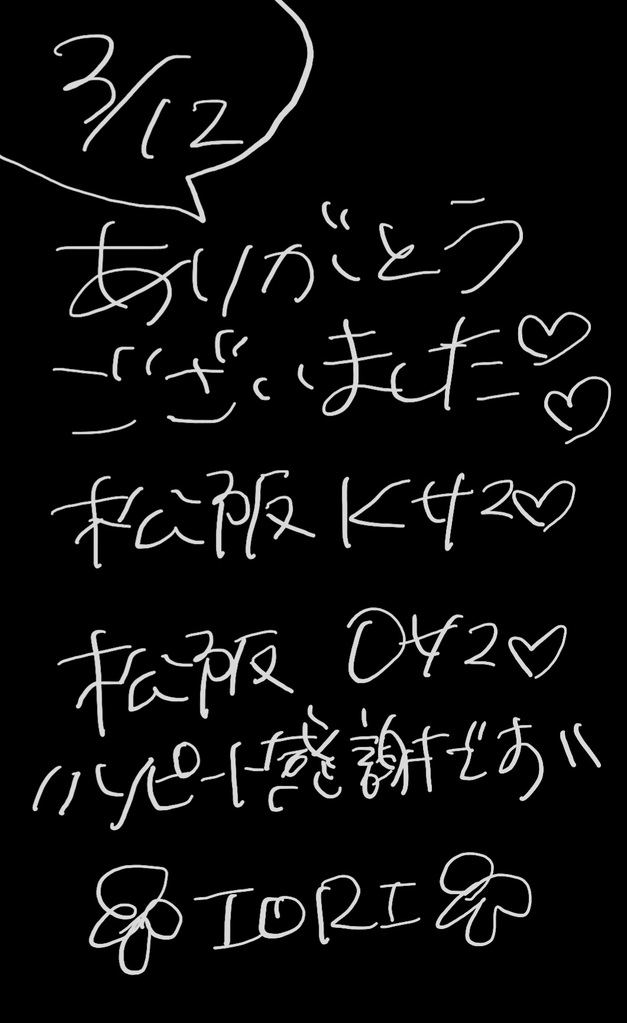 3/12
ありがとう
ございました♡♡
松阪 Kサ2♡
松阪 Oサ2♡
リピート感謝です
IORI